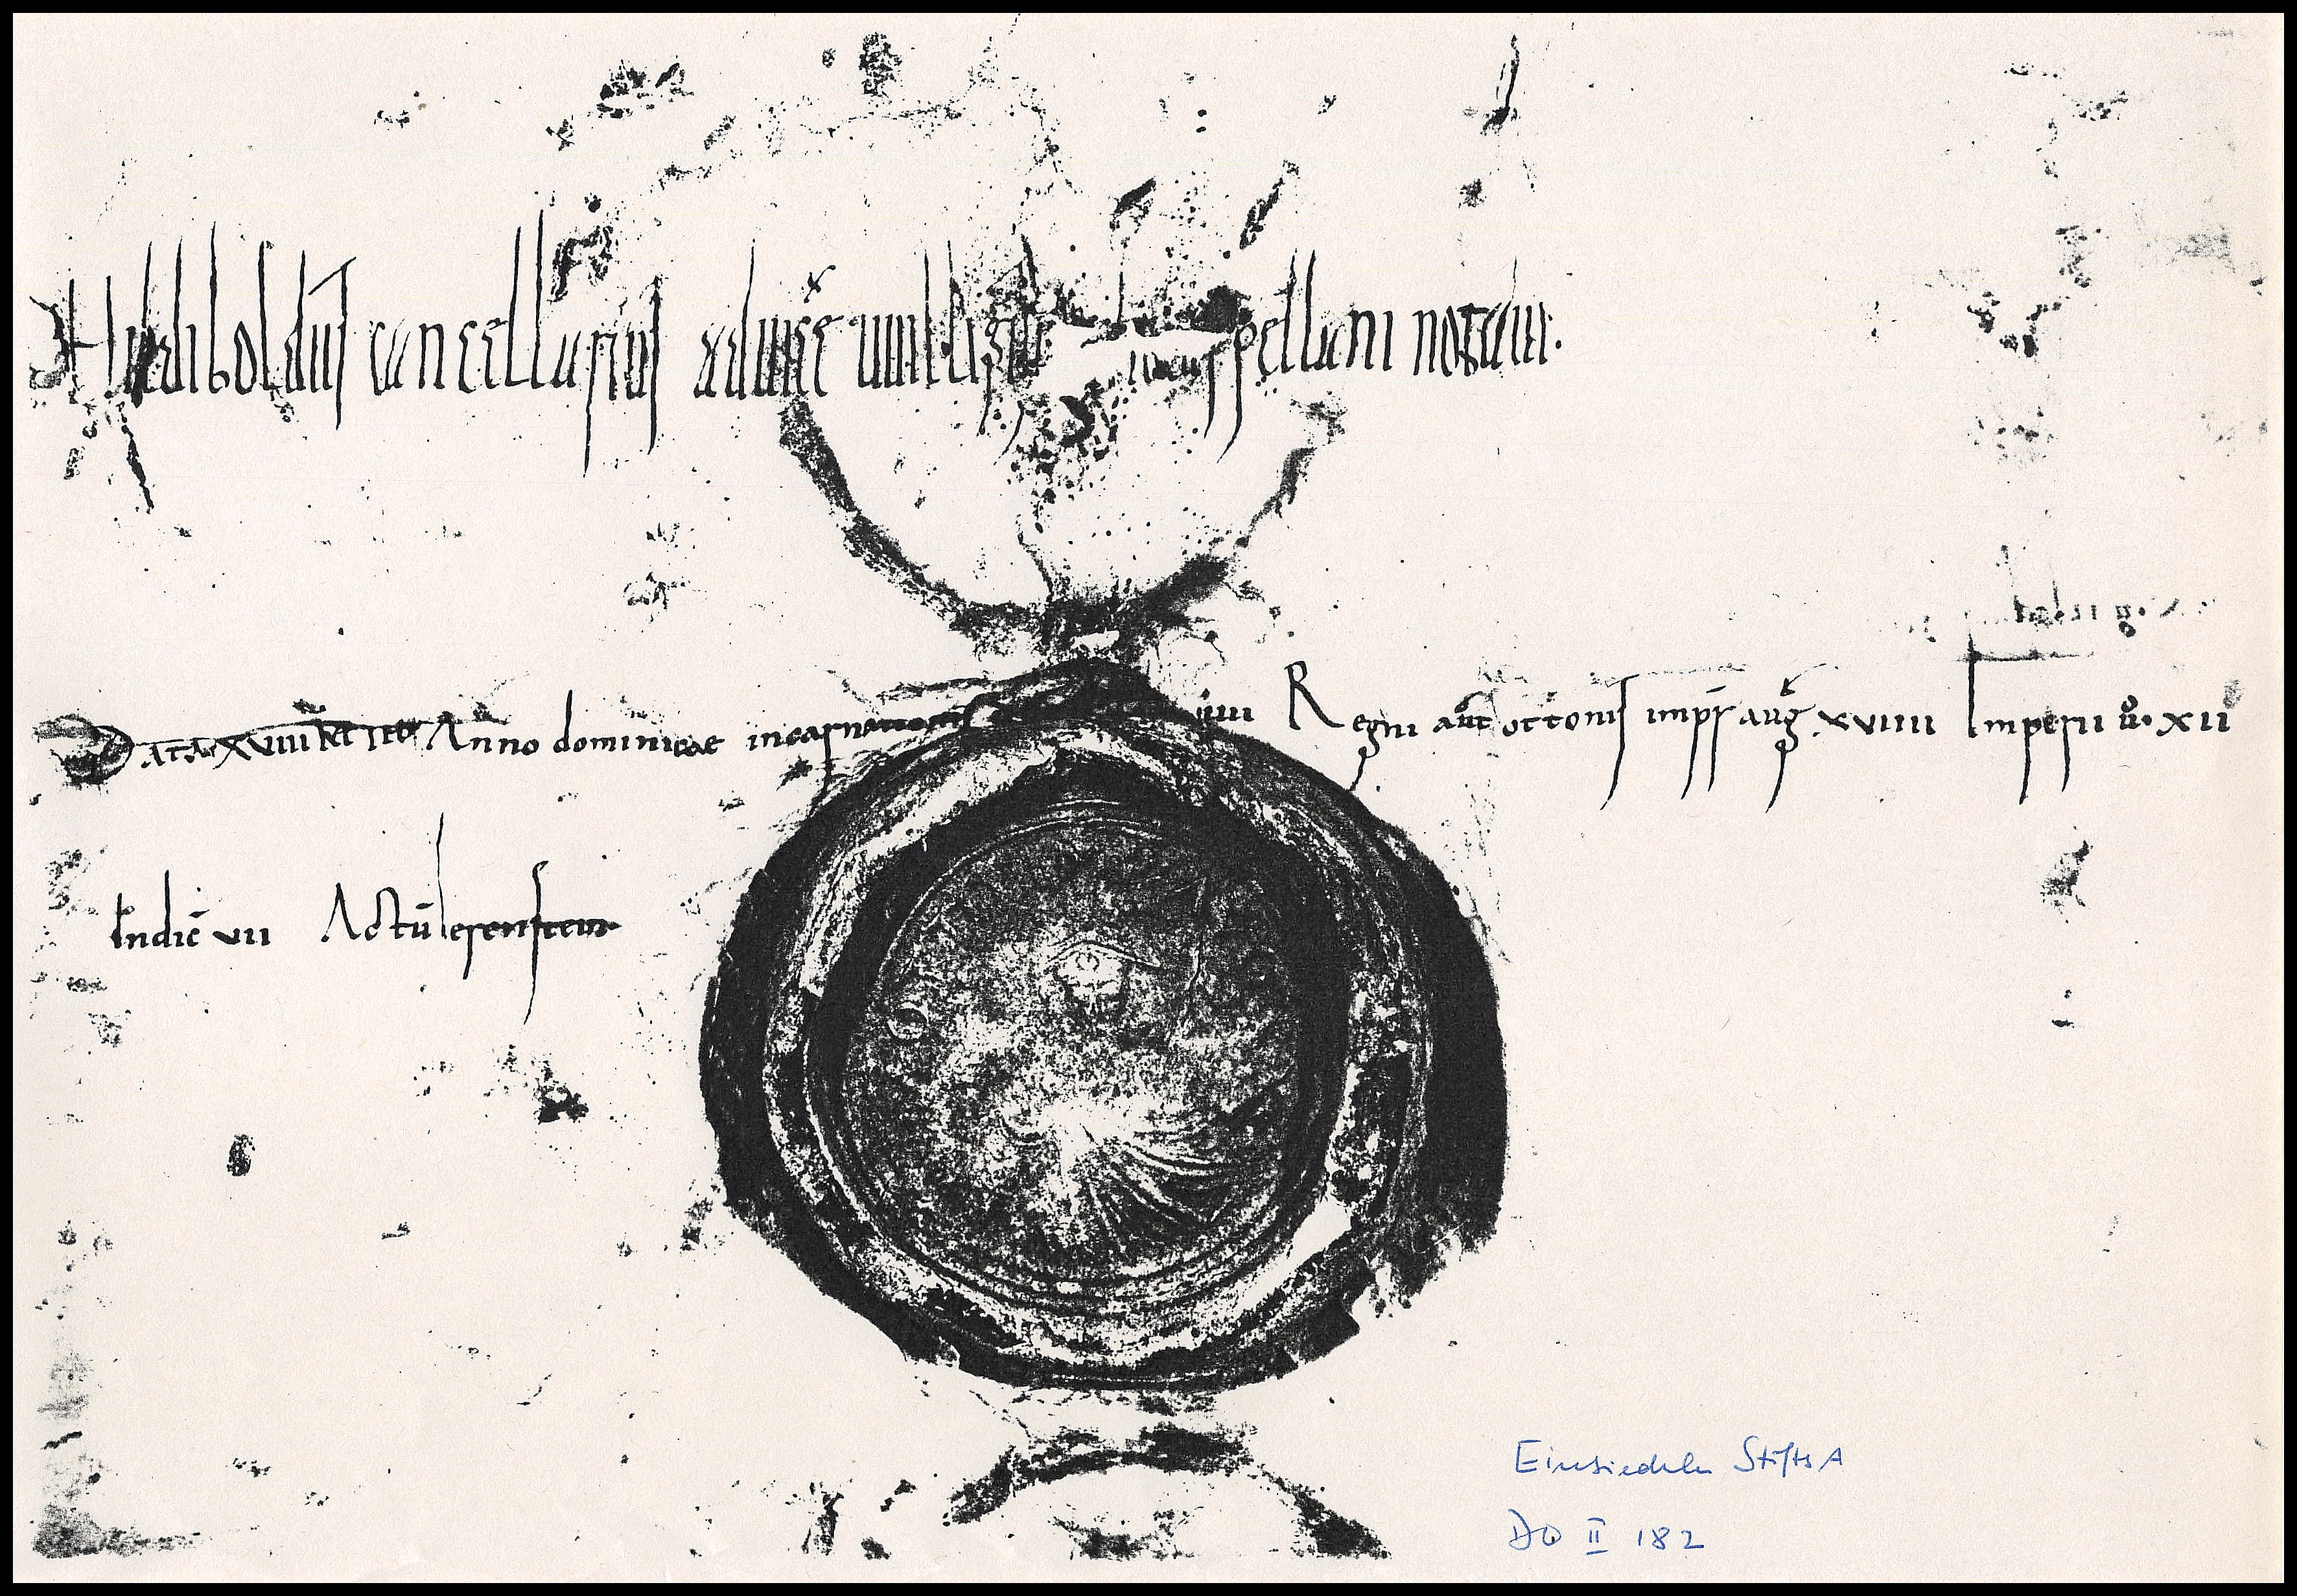 Hildiboldus cancellarius advicē uuilligisi archicappellani notavi.
Data xviii kł Anno dominicae incarnationis iiii Regni aut̄ ottonis imp̄r aug̅ xviiii Imperii ů xii
Indic̄ vii Actū
Einsiedeln StiftsA
DO II 182